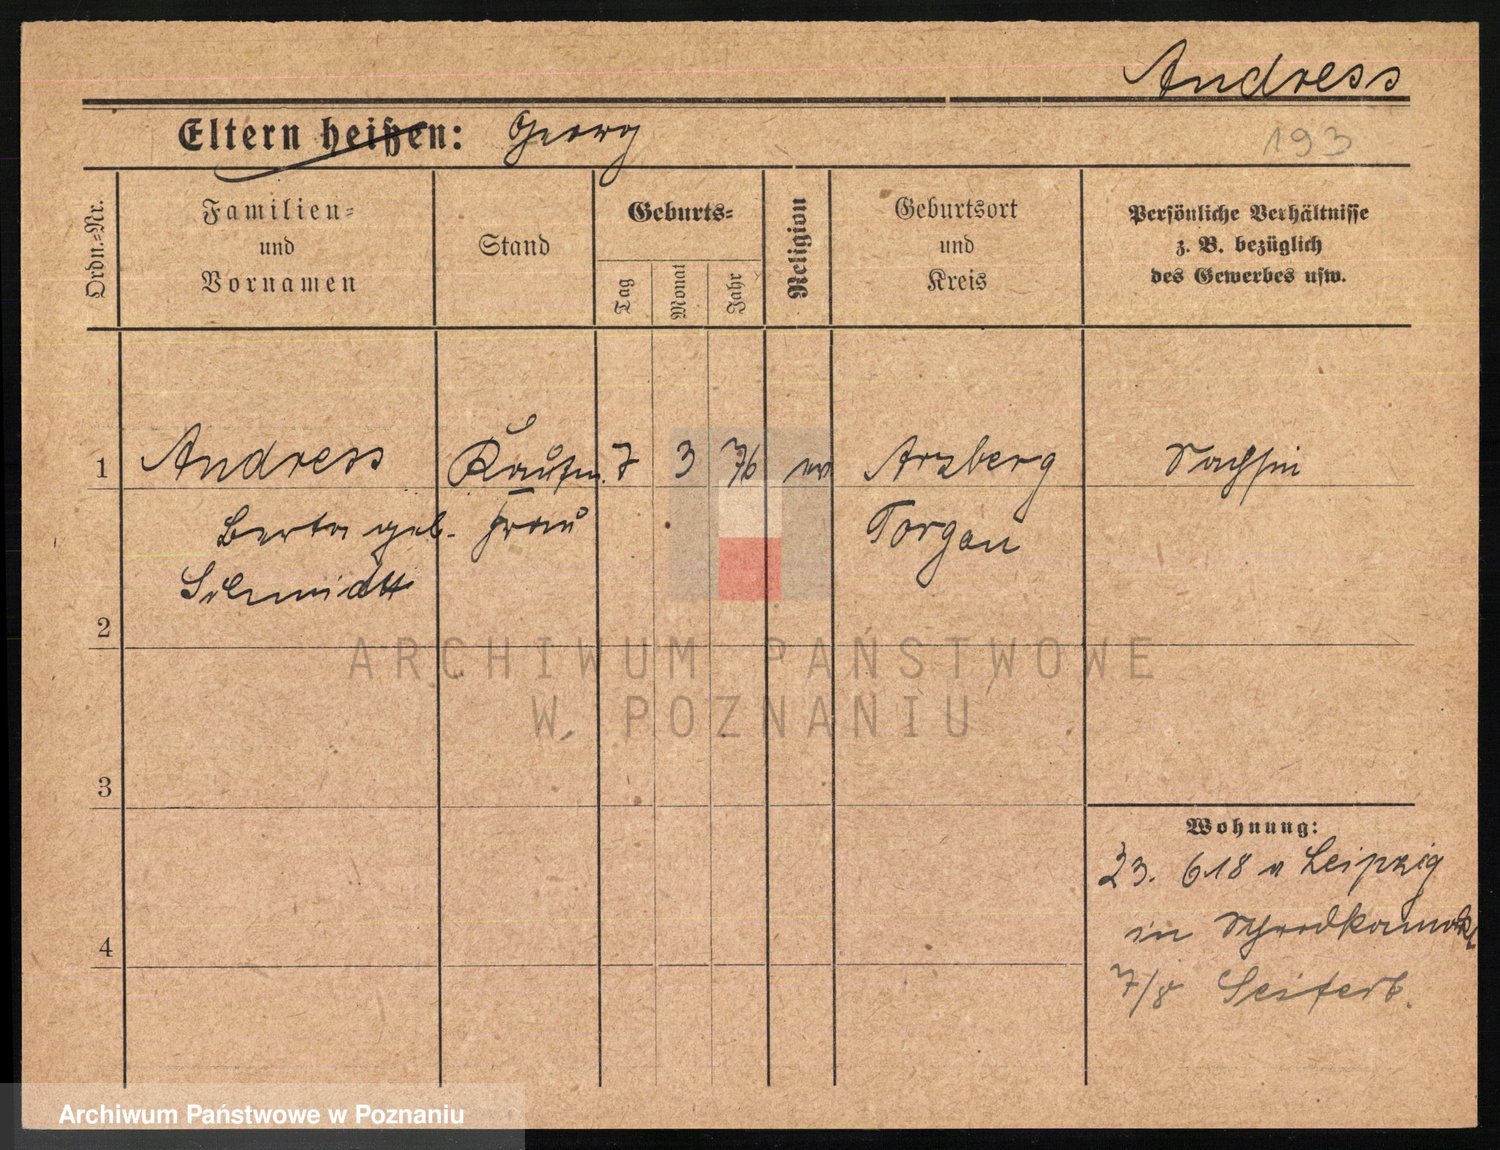 Andress
Eltern heißen: Georg
193
Ordn.=Nr.
Familien=
und
Vornamen
Stand
Geburts=
Tag
Monat
Jahr
Religion
Geburtsort
und
Kreis
Persönliche Verhältnisse
z. B. bezüglich
des Gewerbes usw.
1 Andress Kaufm. 7 3 76 ev Arzberg Sachsen
Berta geb. Frau Torgau
Schmidt
2
3
4
Wohnung:
23. 6 18 v Leipzig
in
7/8 Seiferb.
ARCHIWUM PAŃSTWOWE
W POZNANIU
Archiwum Państwowe w Poznaniu